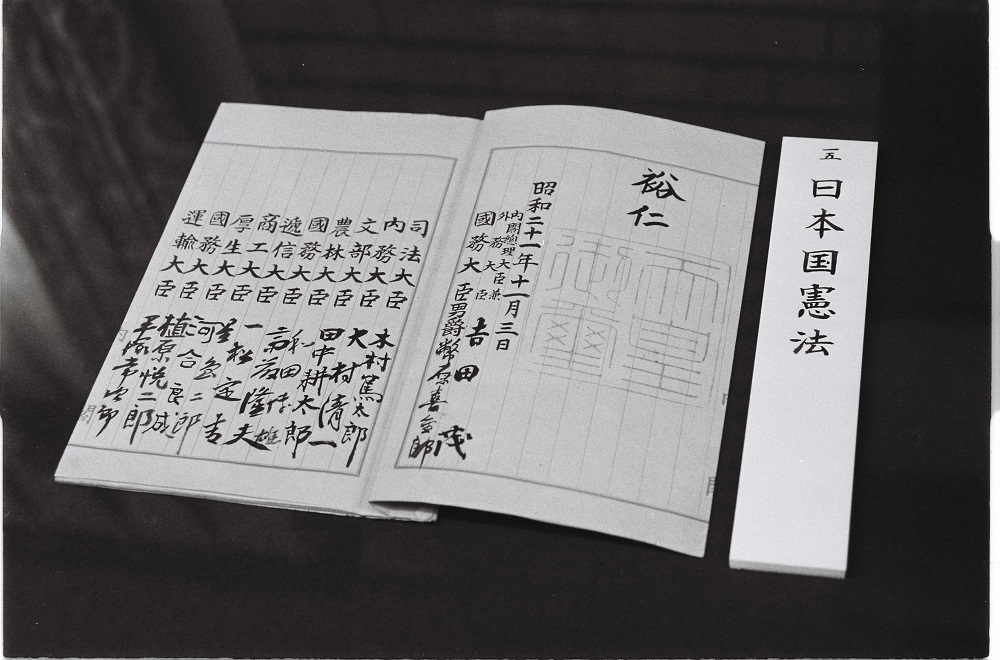 一五
日本国憲法
裕仁
天皇
御璽
昭和二十一年十一月三日
内閣總理大臣兼
外務大臣
吉田茂
國務大臣男爵幣原喜重郎
司法大臣木村篤太郎
内務大臣大村清一
文部大臣田中耕太郎
農林大臣和田博雄
國務大臣斎藤隆夫
遞信大臣一松定吉
商工大臣星島二郎
厚生大臣河合良成
國務大臣植原悦二郎
運輸大臣平塚常次郎